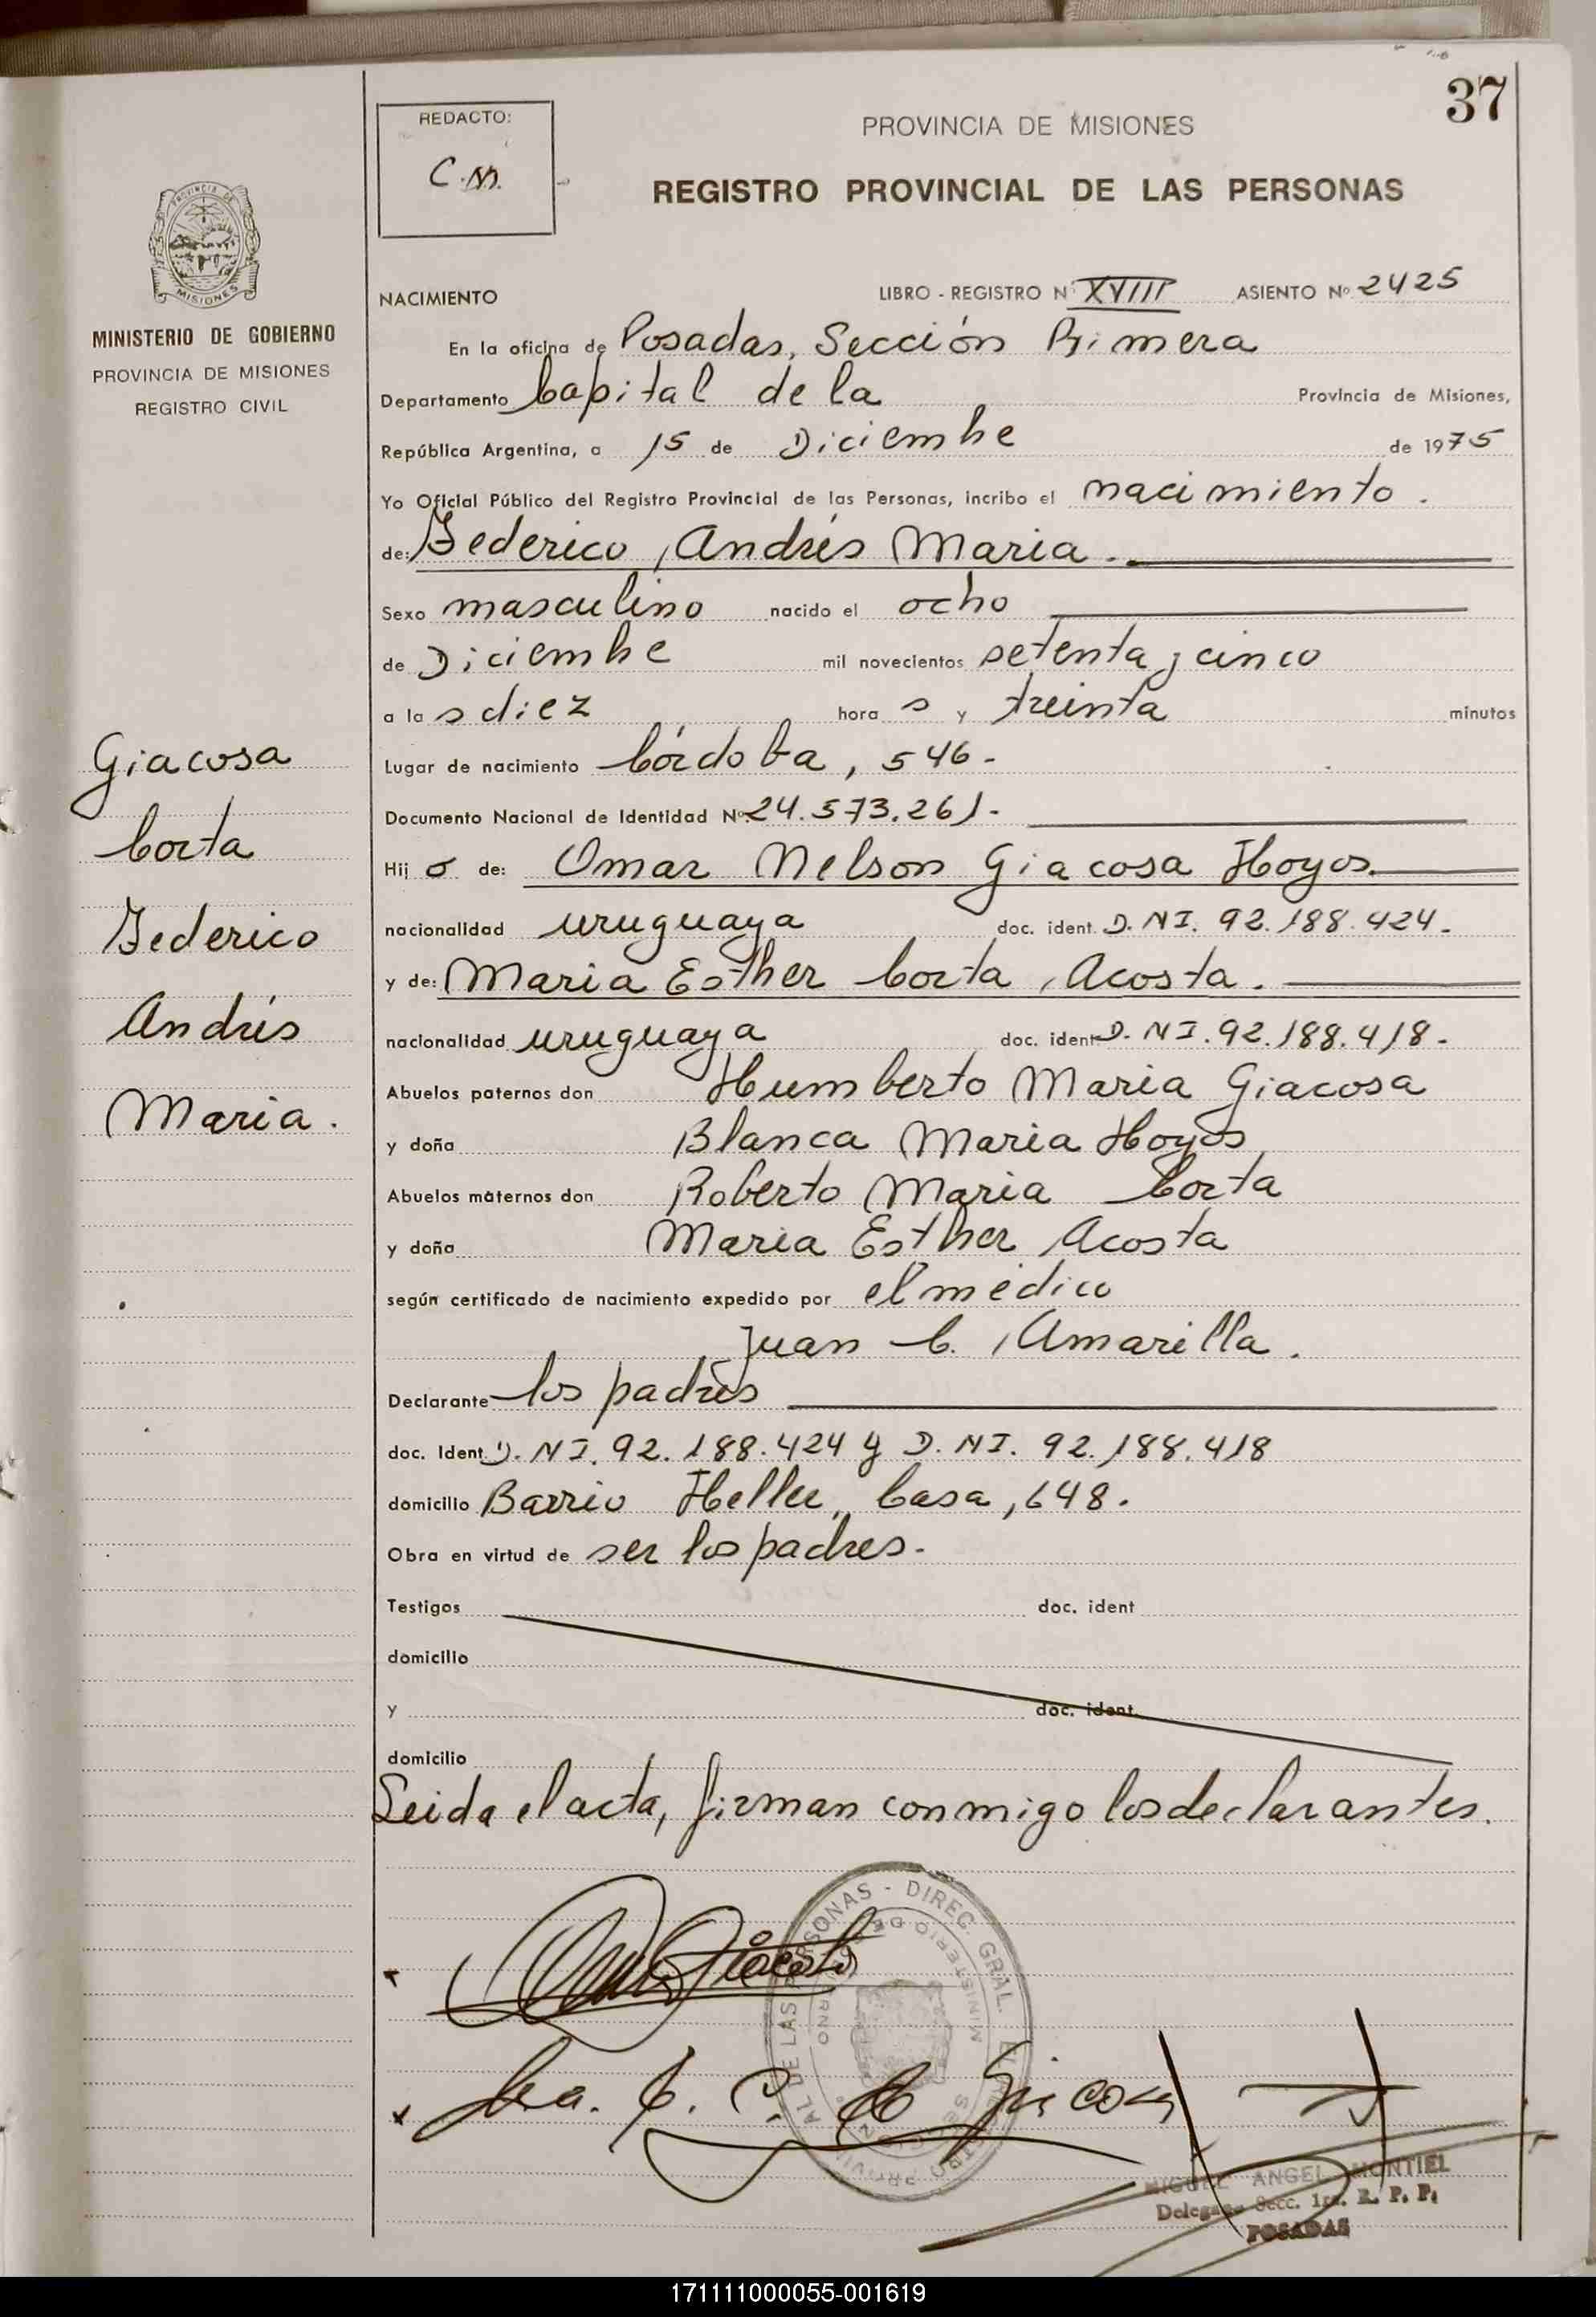 37
REDACTO:
C.M.
PROVINCIA DE MISIONES
REGISTRO PROVINCIAL DE LAS PERSONAS
PROVINCIA DE
MISIONES
MINISTERIO DE GOBIERNO
PROVINCIA DE MISIONES
REGISTRO CIVIL
NACIMIENTO LIBRO - REGISTRO Nº XVIII ASIENTO Nº 2425
En la oficina de Posadas, Sección Primera
Departamento Capital de la Provincia de Misiones,
República Argentina, a 15 de Diciembre de 1975
Yo Oficial Público del Registro Provincial de las Personas, incribo el nacimiento.
de: Federico Andrés Maria.
Sexo masculino nacido el ocho
de Diciembre mil novecientos setenta y cinco
a la s diez hora s y treinta minutos
Lugar de nacimiento Córdoba, 546-
Documento Nacional de Identidad Nº 24.573.261-
Hij o de: Omar Nelson Giacosa Hoyos.
nacionalidad uruguaya doc. ident. D.NI. 92.188.424-
y de: Maria Esther Corta Acosta.
nacionalidad uruguaya doc. ident D.NI. 92.188.418-
Abuelos paternos don Humberto Maria Giacosa
y doña Blanca Maria Hoyos
Abuelos maternos don Roberto Maria Corta
y doña Maria Esther Acosta
según certificado de nacimiento expedido por el médico
Juan C. Amarilla.
Declarante los padres
doc. Ident. D.NI. 92.188.424 y D.NI. 92.188.418
domicilio Barrio Heller, Casa, 648.
Obra en virtud de ser los padres-
Testigos doc. ident
domicilio
y doc. ident.
domicilio
Leida el acta, firman conmigo los declarantes.
Giacosa
Corta
Federico
Andrés
Maria.
MIGUEL ANGEL MONTIEL
Delegado Secc. 1ra. R. P. P.
POSADAS
171111000055-001619